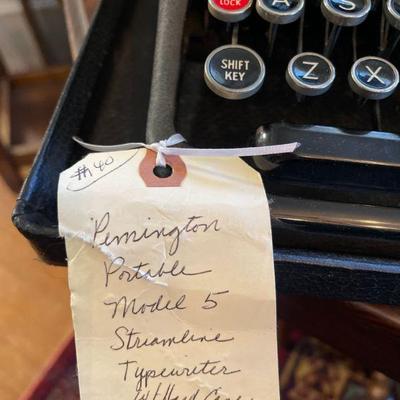 LOCK
A
S
SHIFT
KEY
Z
X
#40
Remington
Portable
Model 5
Streamline
Typewriter
Hard Case